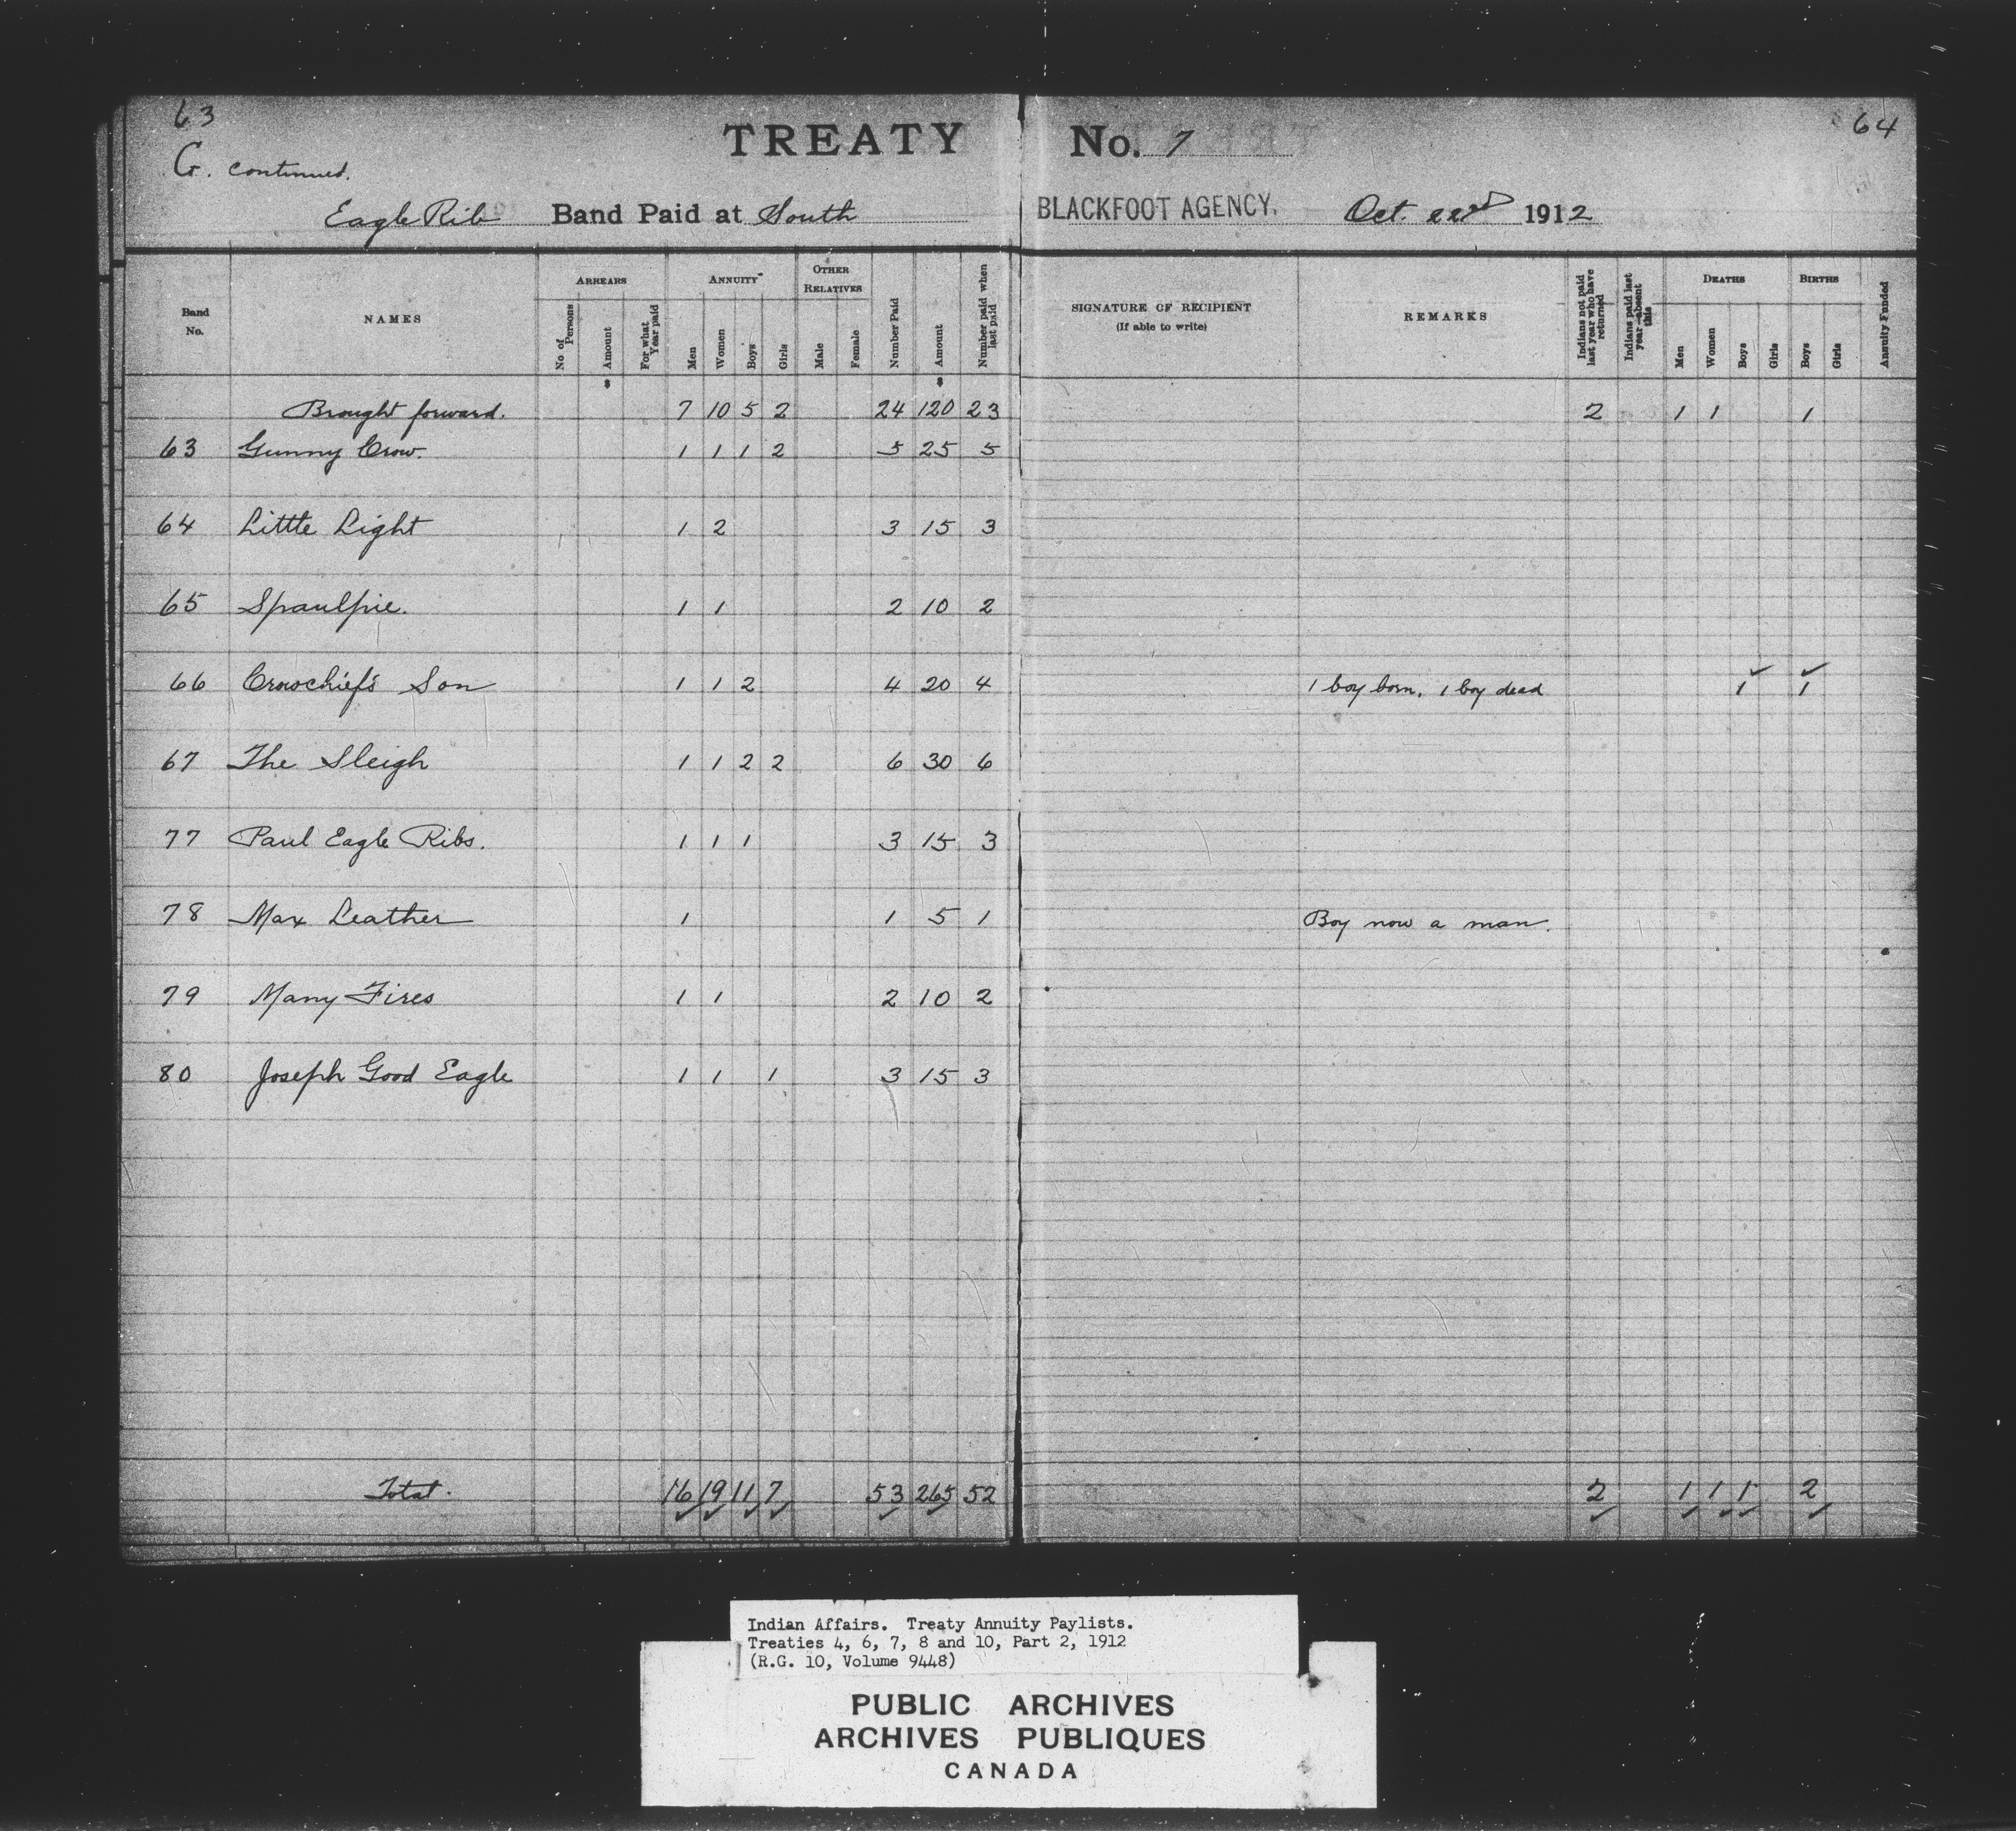 63
64
G. continued.
TREATY No. 7
Eagle Rib Band Paid at South BLACKFOOT AGENCY. Oct. 22nd 1912
Band No.
NAMES
ARREARS
No of Persons
Amount
For what Year paid
ANNUITY
Men
Women
Boys
Girls
OTHER RELATIVES
Male
Female
Number Paid
Amount
Number paid when last paid
SIGNATURE OF RECIPIENT
(If able to write)
REMARKS
Indians not paid last year who have returned
Indians paid last year—absent this
DEATHS
Men
Women
Boys
Girls
BIRTHS
Boys
Girls
Annuity Funded
Brought forward. 7 10 5 2 24 120 23 2 1 1 1
63 Gunny Crow. 1 1 1 2 5 25 5
64 Little Light 1 2 3 15 3
65 Spaulpie. 1 1 2 10 2
66 Crowchief's Son 1 1 2 4 20 4 1 boy born, 1 boy dead 1 1
67 The Sleigh 1 1 2 2 6 30 6
77 Paul Eagle Ribs. 1 1 1 3 15 3
78 Max Leather 1 1 5 1 Boy now a man.
79 Many Fires 1 1 2 10 2
80 Joseph Good Eagle 1 1 1 3 15 3
Total. 16 19 11 7 53 265 52 2 1 1 1 2
Indian Affairs. Treaty Annuity Paylists.
Treaties 4, 6, 7, 8 and 10, Part 2, 1912
(R.G. 10, Volume 9448)
PUBLIC ARCHIVES
ARCHIVES PUBLIQUES
CANADA